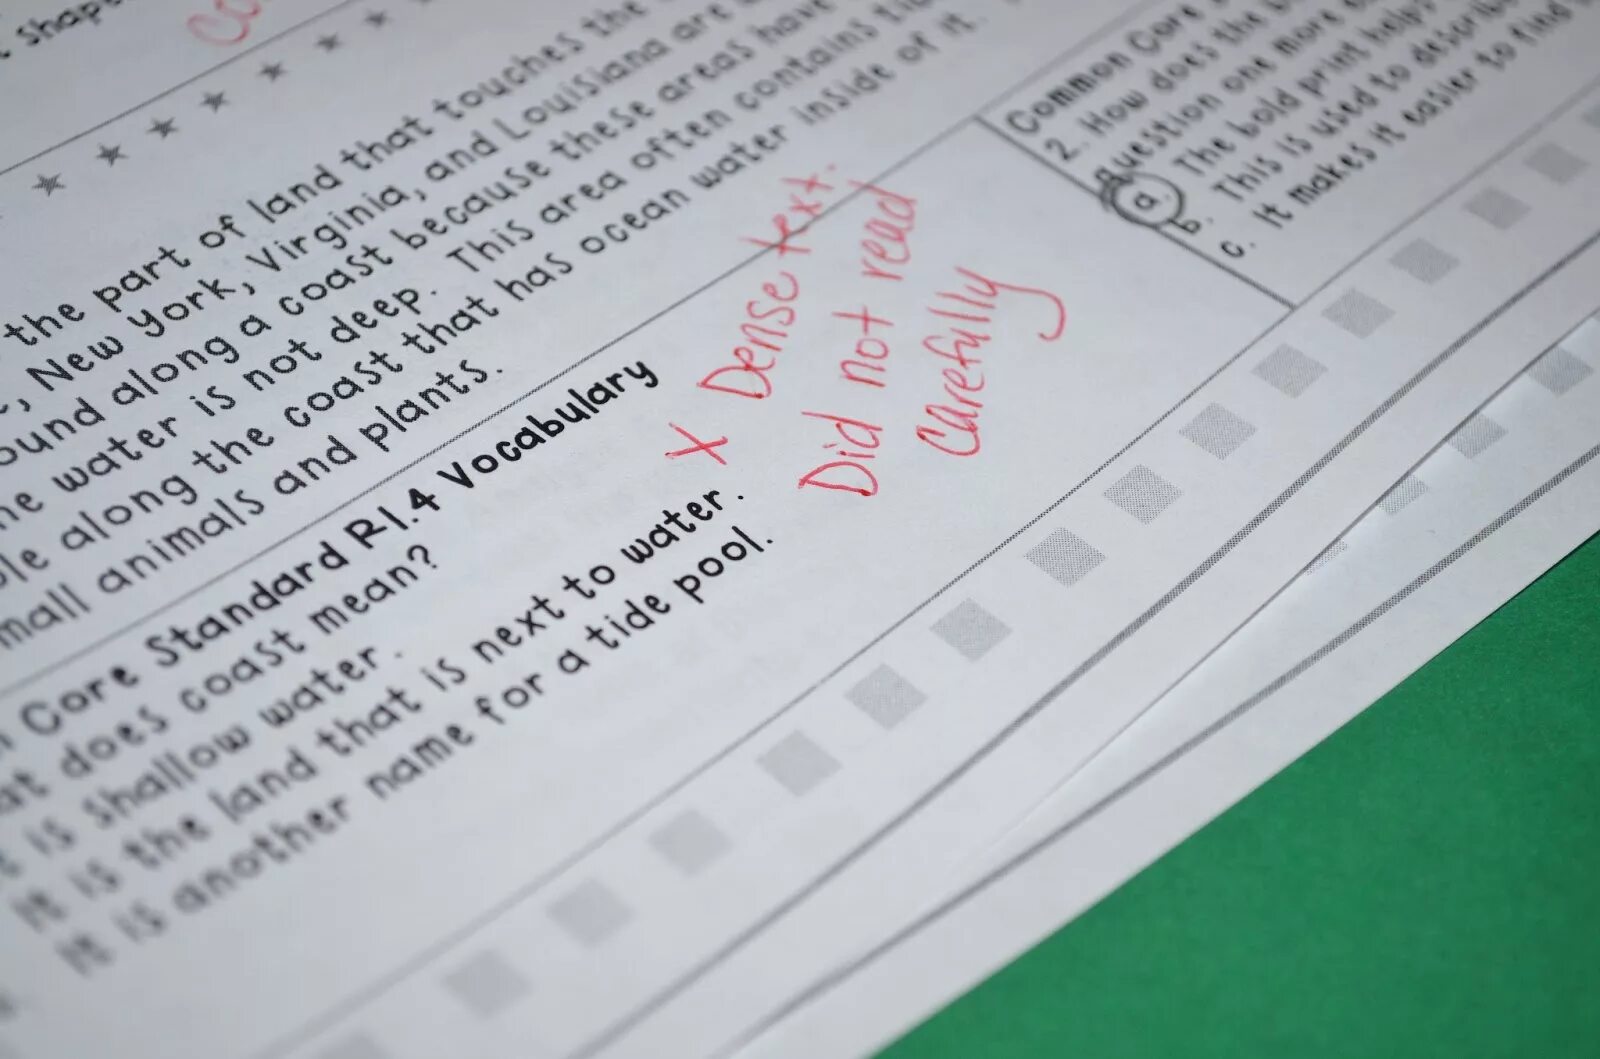 Shape
the part of land that touches the
New York, Virginia, and Louisiana are
along a coast because these areas have
water is not deep. This area often contains
along the coast that has ocean water inside of it.
small animals and plants.
Core Standard RI.4 Vocabulary
does coast mean?
is shallow water.
It is the land that is next to water.
It is another name for a tide pool.
X Dense text.
Did not read
carefully
Common Core
2. How does the
question one more
a. The bold print
b. This is used to describe
c. It makes it easier to find